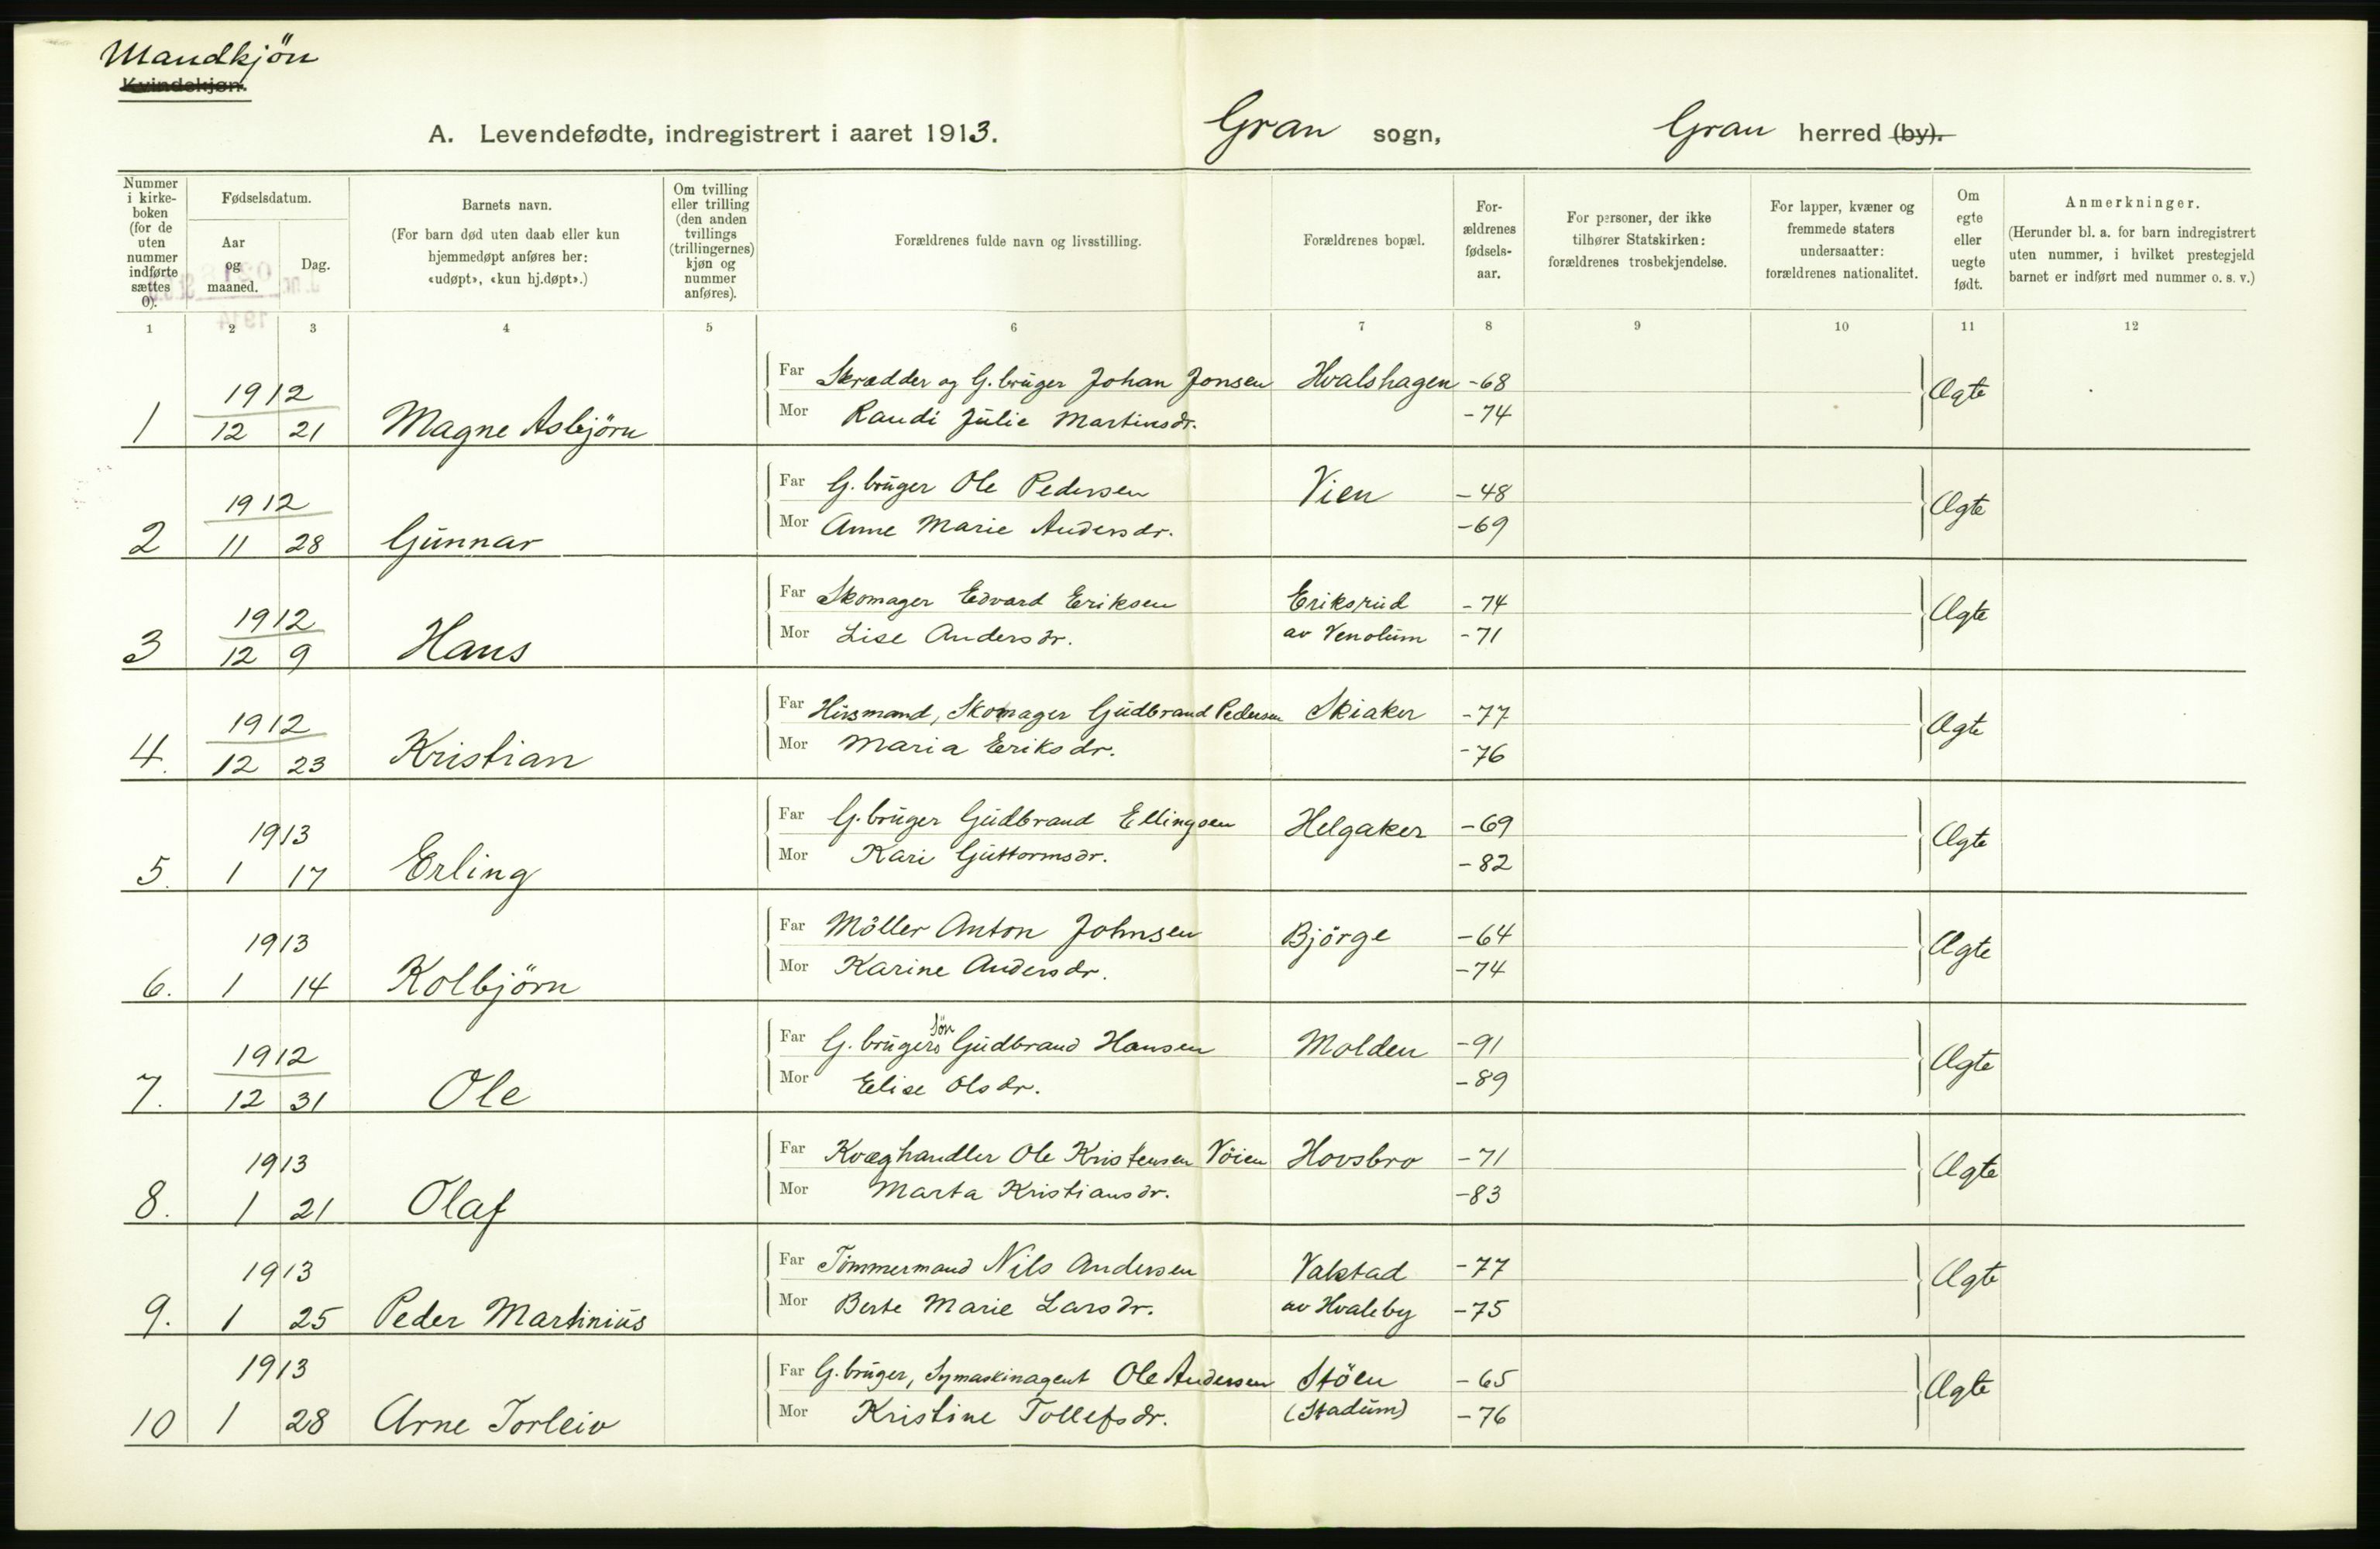 Mandkjön
Kvindekjøn.
A. Levendefødte, indregistrert i aaret 1913. Gran sogn, Gran herred (by).
Nummer i kirke-boken (for de uten nummer indførte sættes 0).
Fødselsdatum.
Aar og maaned.
Dag.
Barnets navn.
(For barn død uten daab eller kun hjemmedøpt anføres her: «udøpt», «kun hj.døpt».)
Om tvilling eller trilling (den anden tvillings (trillingernes) kjøn og nummer anføres).
Forældrenes fulde navn og livsstilling.
Forældrenes bopæl.
For-ældrenes fødsels-aar.
For personer, der ikke tilhører Statskirken: forældrenes trosbekjendelse.
For lapper, kvæner og fremmede staters undersaatter: forældrenes nationalitet.
Om egte eller uegte født.
Anmerkninger.
(Herunder bl. a. for barn indregistrert uten nummer, i hvilket prestegjeld barnet er indført med nummer o. s. v.)
1 2 3 4 5 6 7 8 9 10 11 12
1912
Far Skrædder og G.bruger Johan Jonsen Hvalshagen -68 Ægte
1 12 21 Magne Asbjörn Mor Randi Julie Martinsdr. -74
1912
Far G.bruger Ole Pedersen Vien -48 Ægte
2 11 28 Gunnar Mor Anne Marie Andersdr. -69
1912
Far Skomager Edvard Eriksen Eriksrud -74 Ægte
3 12 9 Hans Mor Lise Andersdr. av Venolum -71
1912
Far Husmand, Skomager Gudbrand Pedersen Skiaker -77 Ægte
4. 12 23 Kristian Mor Maria Eriksdr. -76
1913
Far G.bruger Gudbrand Ellingsen Helgaker -69 Ægte
5. 1 17 Erling Mor Kari Guttormsdr. -82
1913
Far Möller Anton Johnsen Björge -64 Ægte
6. 1 14 Kolbjörn Mor Karine Andersdr. -74
1912
Far G.brugers sön Gudbrand Hansen Molden -91 Ægte
7. 12 31 Ole Mor Elise Olsdr. -89
1913
Far Kvæghandler Ole Kristensen Vöien Hovsbro -71 Ægte
8. 1 21 Olaf Mor Marta Kristiansdr. -83
1913
Far Tömmermand Nils Andersen Valstad -77 Ægte
9. 1 25 Peder Martinius Mor Berte Marie Larsdr. av Hvaleby -75
1913
Far G.bruger, Symaskinagent Ole Andersen Stöen -65 Ægte
10 1 28 Arne Torleiv Mor Kristine Tollefsdr. (Stadum) -76